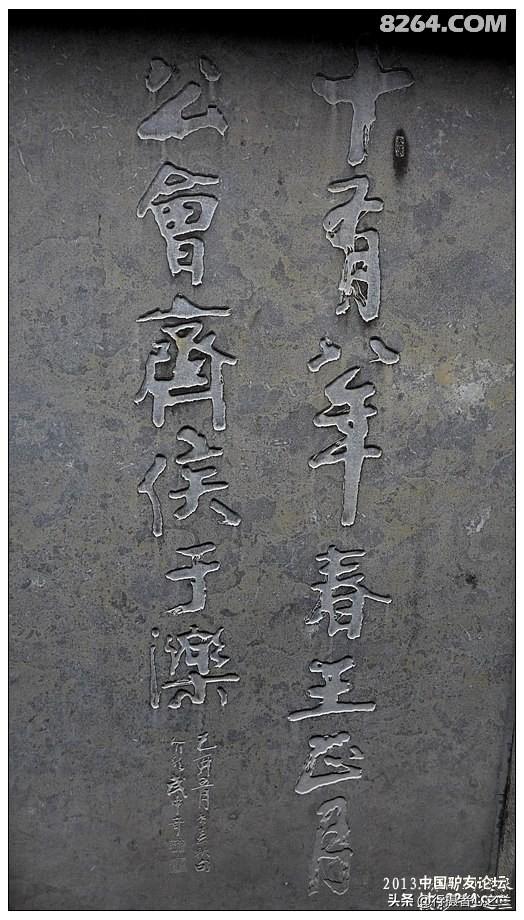 8264.COM
十有八年春王正月
公會齊侯于濼
己酉五月
武中奇
2013中国驴友论坛
头条